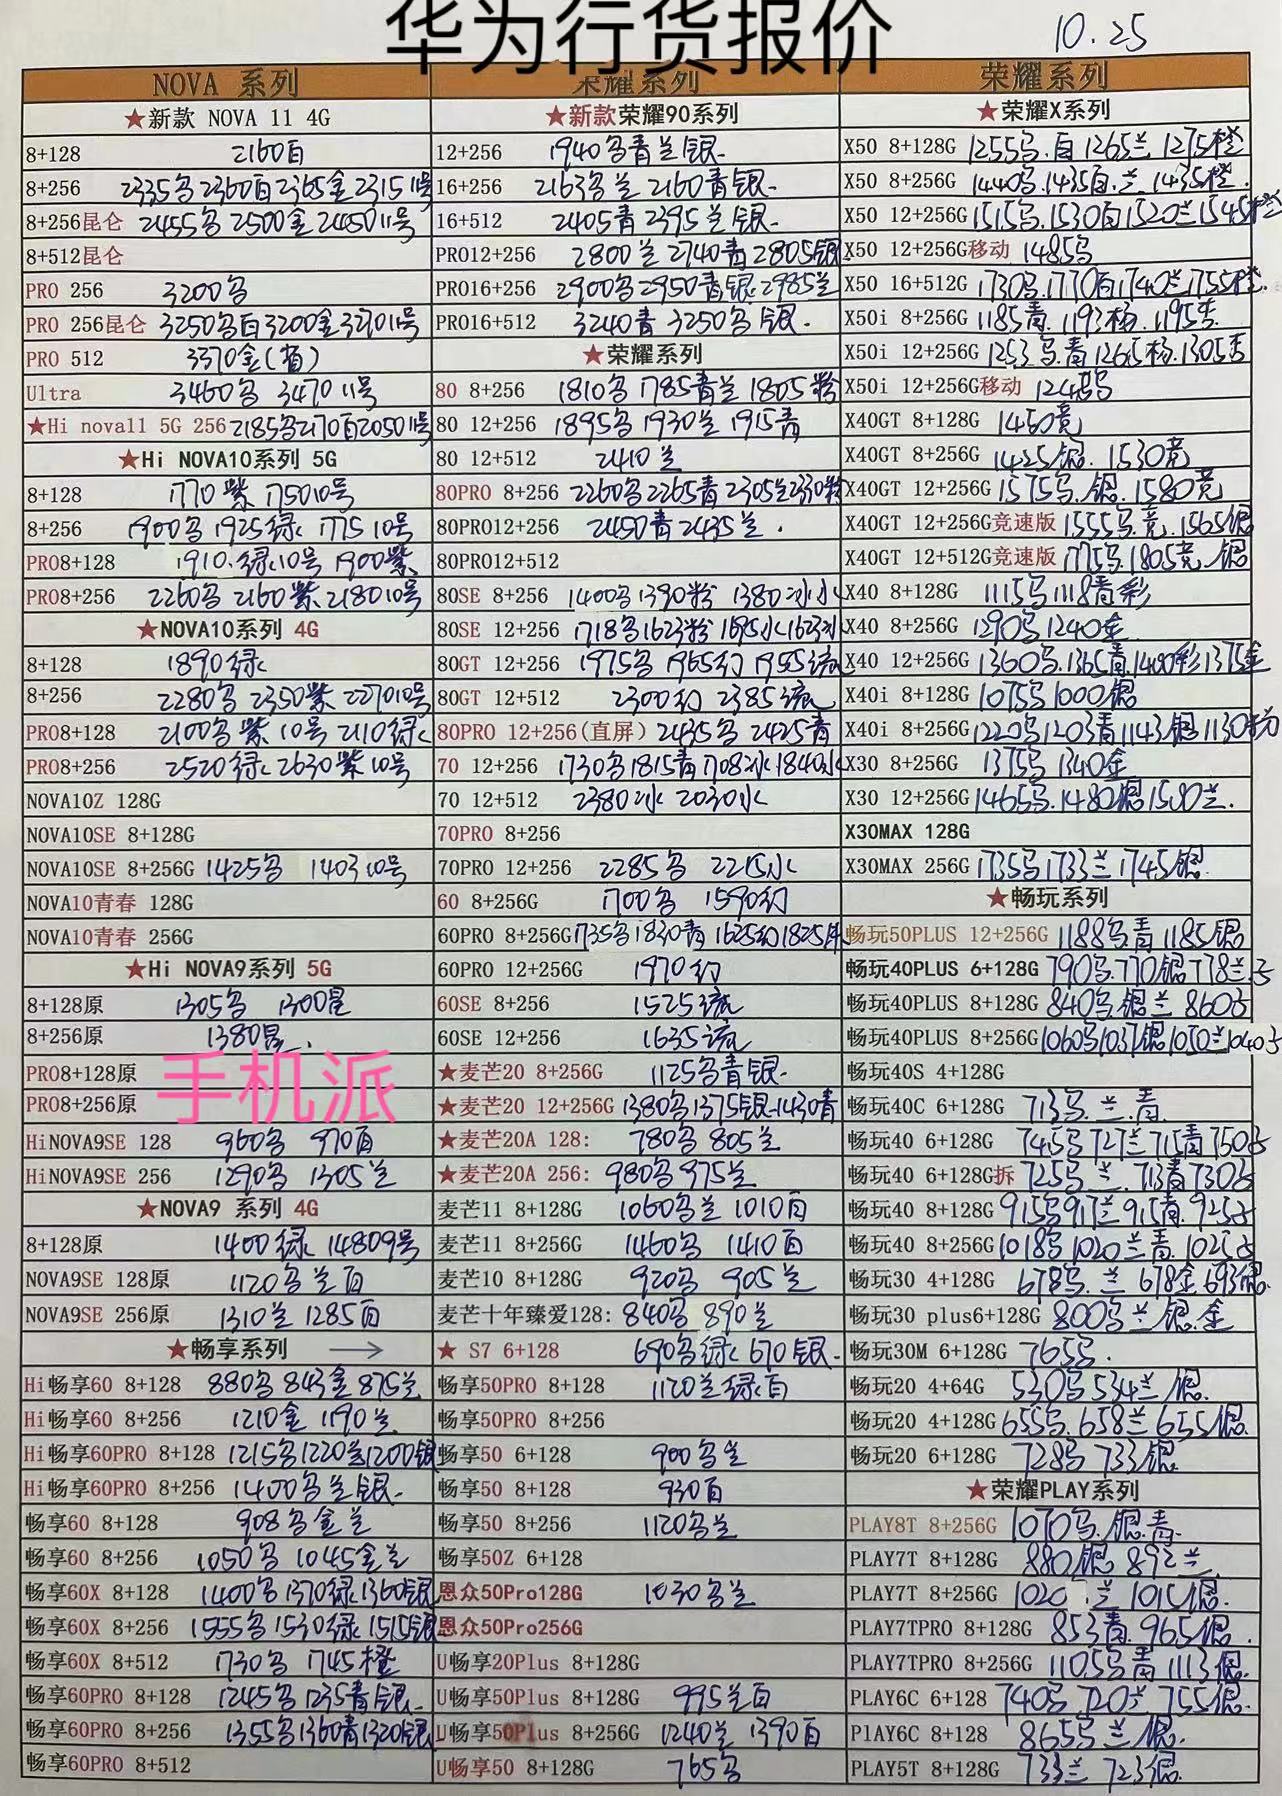 华为行货报价
10.25
NOVA 系列
★新款 NOVA 11 4G
8+128 2160白
8+256 2335乌2360白2365金2315 11号
8+256昆仑 2455乌 2500金 2450 11号
8+512昆仑
PRO 256 3200乌
PRO 256昆仑 3250乌白3200金3270 11号
PRO 512 3370金
Ultra 3460乌 3470 11号
★Hi nova11 5G 256 2185乌2170白2050 11号
★Hi NOVA10系列 5G
8+128 1770紫 1750 10号
8+256 1900乌 1925绿 1775 10号
PRO8+128 1910.绿10号 1900紫
PRO8+256 2260乌 2160紫 2180 10号
★NOVA10系列 4G
8+128 1890绿
8+256 2280乌 2350紫 2270 10号
PRO8+128 2100乌紫10号 2110绿
PRO8+256 2520绿 2630紫10号
NOVA10Z 128G
NOVA10SE 8+128G
NOVA10SE 8+256G 1425乌 1403 10号
NOVA10青春 128G
NOVA10青春 256G
★Hi NOVA9系列 5G
8+128原 1305乌 1300星
8+256原 1380星.
手机派
PRO8+128原
PRO8+256原
HiNOVA9SE 128 960乌 970白
HiNOVA9SE 256 1290乌 1305兰
★NOVA9 系列 4G
8+128原 1400绿 1480 9号
NOVA9SE 128原 1120乌兰白
NOVA9SE 256原 1310兰 1285白
★畅享系列 →
Hi畅享60 8+128 880乌 843金 875兰
Hi畅享60 8+256 1210金 1190兰
Hi畅享60PRO 8+128 1215乌1220兰1200银
Hi畅享60PRO 8+256 1400乌兰银.
畅享60 8+128 908乌金兰
畅享60 8+256 1050乌 1045金兰
畅享60X 8+128 1400乌1370绿1360银
畅享60X 8+256 1555乌1530绿1515银
畅享60X 8+512 1730乌 1745橙
畅享60PRO 8+128 1245乌1235青银.
畅享60PRO 8+256 1355乌1360青1320银
畅享60PRO 8+512
荣耀系列
★新款荣耀90系列
12+256 1940乌青兰银.
16+256 2163乌兰 2160青银.
16+512 2405青 2395兰银.
PRO12+256 2800兰 2740青2805银
PRO16+256 2900乌2950青银2985兰
PRO16+512 3240青 3250乌银.
★荣耀系列
80 8+256 1810乌 1785青兰 1805粉
80 12+256 1895乌 1930兰 1915青
80 12+512 2410兰
80PRO 8+256 2260乌2265青2305兰2330粉
80PRO12+256 2450青 2435兰.
80PRO12+512
80SE 8+256 1400乌1390粉 1380冰
80SE 12+256 1718乌1623粉
80GT 12+256 1975乌 1965幻 1955流
80GT 12+512 2300幻 2385流
80PRO 12+256(直屏) 2435乌 2425青
70 12+256 1730乌1815青1708冰1840水
70 12+512 2380冰 2030水
70PRO 8+256
70PRO 12+256 2285乌 2215水
60 8+256G 1700乌 1590幻
60PRO 8+256G 1735乌1830青1625幻1825
60PRO 12+256G 1970幻
60SE 8+256 1525流
60SE 12+256 1635流
★麦芒20 8+256G 1125乌青银.
★麦芒20 12+256G 1380乌1375银1430青
★麦芒20A 128: 780乌 805兰
★麦芒20A 256: 980乌 975兰
麦芒11 8+128G 1060乌兰 1010白
麦芒11 8+256G 1460乌 1410白
麦芒10 8+128G 920乌 905兰
麦芒十年臻爱128: 840乌 890兰
★ S7 6+128 690乌绿 670银.
畅享50PRO 8+128 1120兰绿白
畅享50PRO 8+256
畅享50 6+128 900乌兰
畅享50 8+128 930白
畅享50 8+256 1120乌兰
畅享50Z 6+128
恩众50Pro128G 1030乌兰
恩众50Pro256G
U畅享20Plus 8+128G
U畅享50Plus 8+128G 995兰白
U畅享50Plus 8+256G 1240兰 1390白
U畅享50 8+128G 765乌
荣耀系列
★荣耀X系列
X50 8+128G 1255乌.白1265兰 1275橙
X50 8+256G 1440乌.1435白.兰.1435橙.
X50 12+256G 1515乌.1530白1520兰1545橙
X50 12+256G移动 1485乌
X50 16+512G 1730乌.1770白1740兰1755橙.
X50i 8+256G 1185青.1193杨.1195杏
X50i 12+256G 1253乌.青1265杨.1305杏
X50i 12+256G移动 1245乌
X40GT 8+128G 1450竞
X40GT 8+256G 1425银.1530竞
X40GT 12+256G 1575乌.银.1580竞
X40GT 12+256G竞速版 1555乌.竞.1565银
X40GT 12+512G竞速版 1775乌.1805竞.银
X40 8+128G 1115乌1118青彩
X40 8+256G 1290乌1240金.
X40 12+256G 1360乌.1365青.1400彩1375金
X40i 8+128G 1075乌1000银
X40i 8+256G 1220乌1203青1143银1130粉
X30 8+256G 1375乌 1340金
X30 12+256G 1465乌.1480银1500兰.
X30MAX 128G
X30MAX 256G 1735乌1733兰1745银.
★畅玩系列
畅玩50PLUS 12+256G 1188乌青 1185银
畅玩40PLUS 6+128G 790乌.770银778兰
畅玩40PLUS 8+128G 840乌.银兰 860
畅玩40PLUS 8+256G 1060乌1037银1050兰1040
畅玩40S 4+128G
畅玩40C 6+128G 713乌.兰.青.
畅玩40 6+128G 745乌727兰715青750
畅玩40 6+128G拆 725乌.兰.713青730
畅玩40 8+128G 915乌917兰915青.925
畅玩40 8+256G 1018乌1020兰青.1025
畅玩30 4+128G 678乌.兰 678金.693银.
畅玩30 plus6+128G 800乌兰银.金
畅玩30M 6+128G 765乌.
畅玩20 4+64G 530乌534兰银.
畅玩20 4+128G 655乌.658兰655银.
畅玩20 6+128G 728乌 733银.
★荣耀PLAY系列
PLAY8T 8+256G 1070乌.银.青.
PLAY7T 8+128G 880银 892兰.
PLAY7T 8+256G 1020 兰 1015银.
PLAY7TPRO 8+128G 853青.965银.
PLAY7TPRO 8+256G 1105乌青 1113银.
PLAY6C 6+128 740乌.720兰 755银.
PlAY6C 8+128 865乌.兰.银.
PLAY5T 8+128G 733兰 723银.